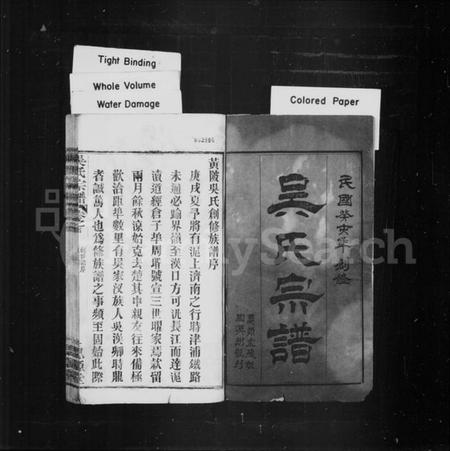 Tight Binding
Whole Volume
Water Damage
Colored Paper
民國癸亥年
吳氏宗譜
黃陂吳氏創修族譜序
庚戌夏予將有泥上濟南之行時津浦鐵路
未通必踰界嶺至漢口方可汎長江而達泥
瀆道經倉子埠周瑤號宣三世曜家焉款留
兩月餘秋涼始克去楚其中親友往來備極
歡洽距埠數里有吳家汊族人吳漢卿時龍
者誠篤人也為修族譜之事頻至固始此際